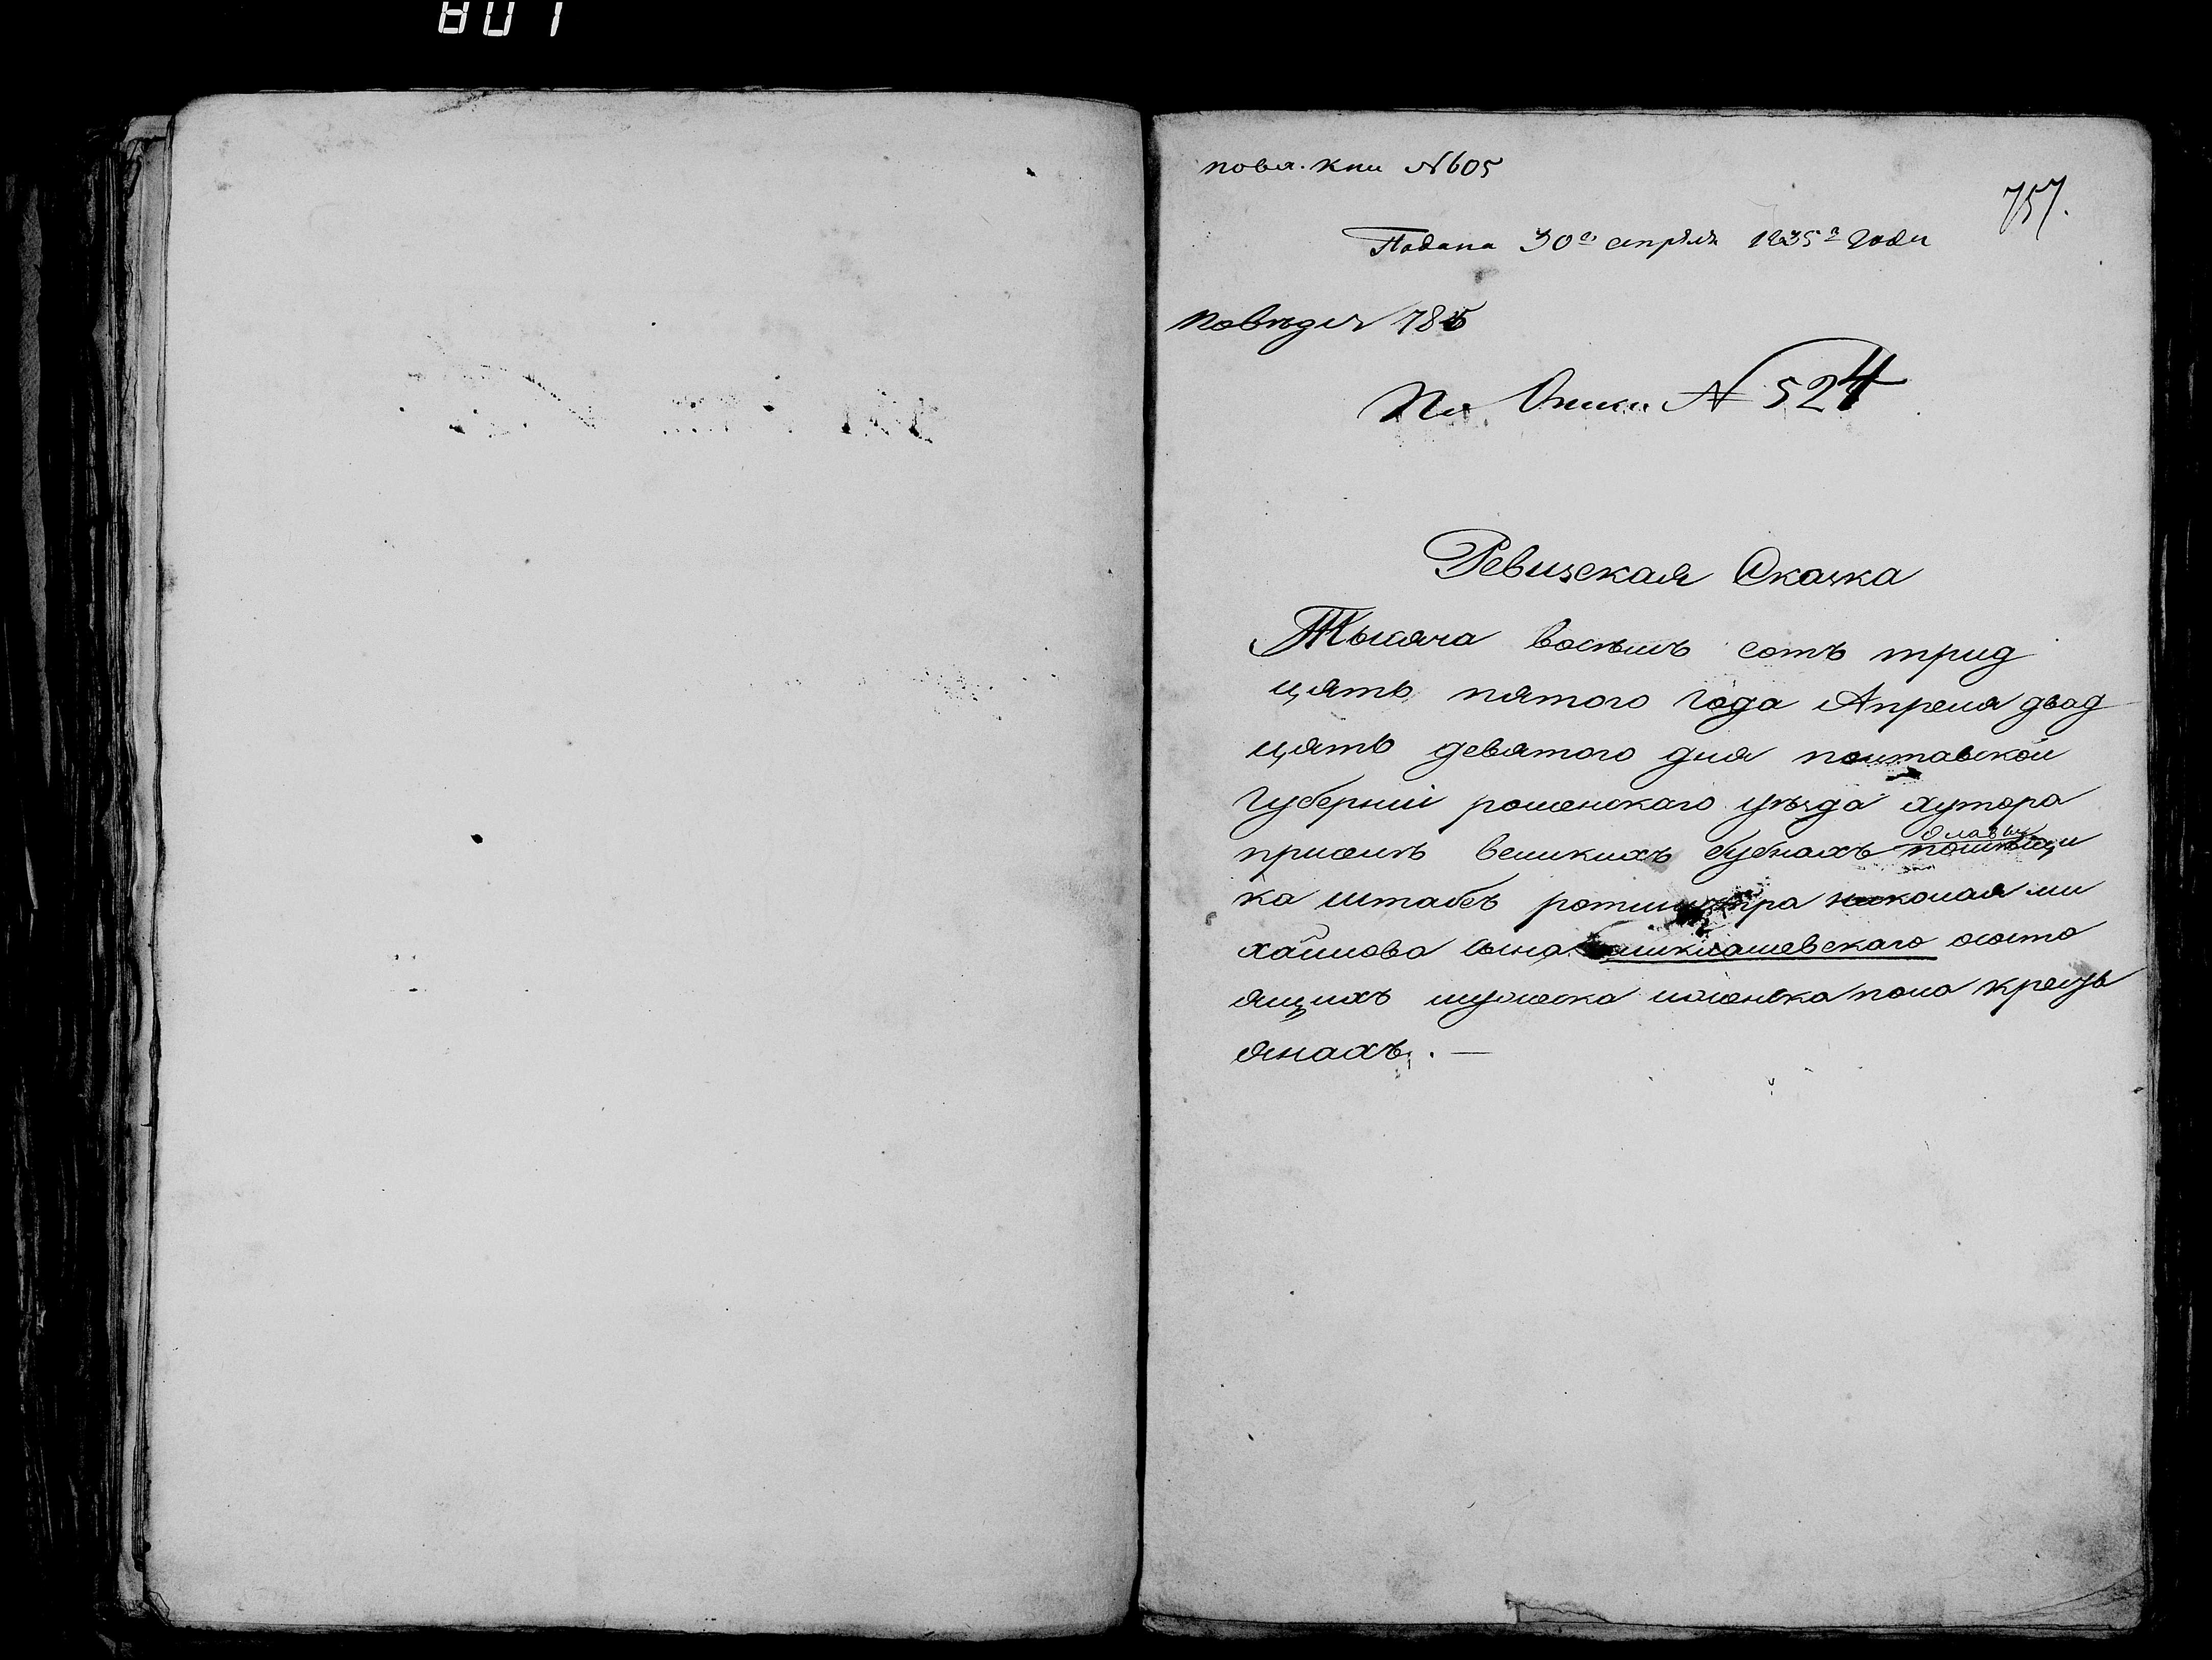 801
повл. кни №605
757.
Подана 30го апреля 1835го года
повъзд 785
По Описи № 524
Ревизская Сказка
Тысяча восемъ сотъ трид
цять пятого года Апреля двад
цять девятого дня полтавской
Губерніи роменскаго уезда хутора
присемъ великихъ бубнахъ помещи
ка штабсъ ротмистра николая ми
хайлова сына миклашевскаго ососто
ящихъ мужеска иженска пола кресть
янахъ. —